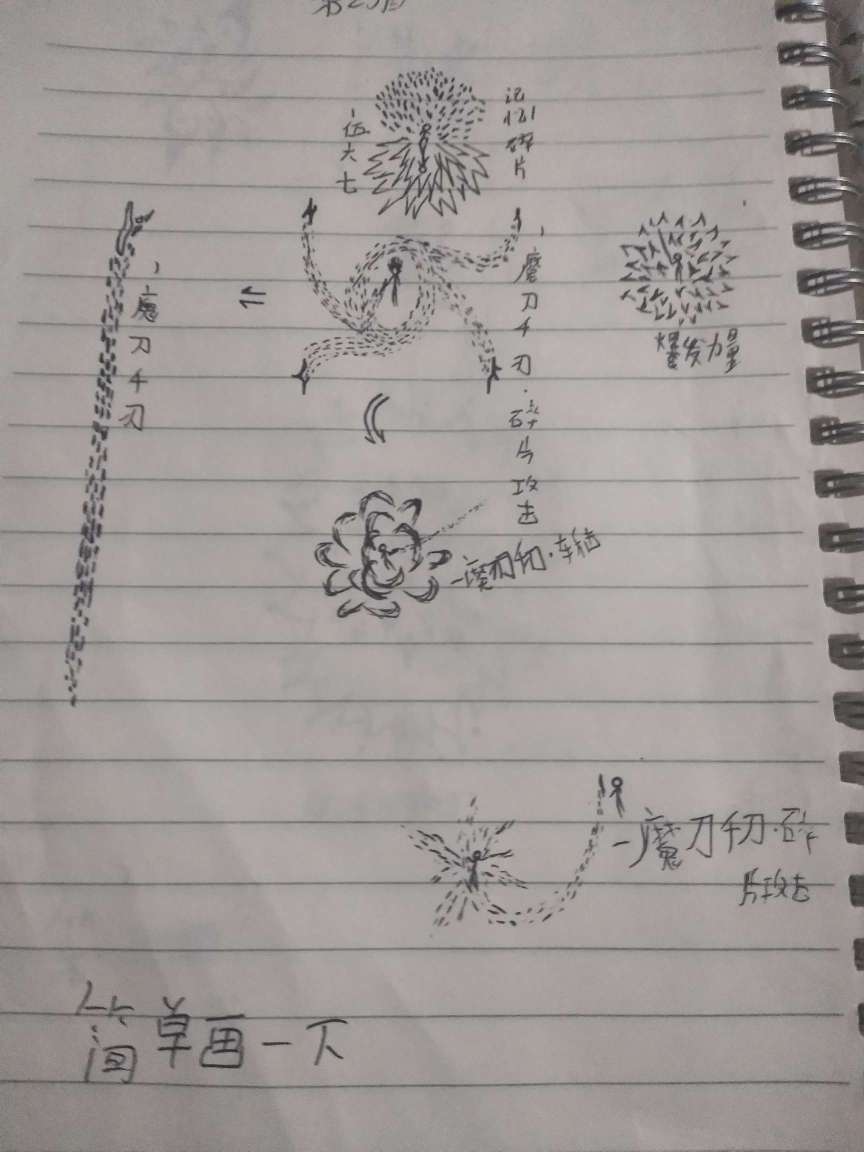 记忆碎片
伍六七
魔刀千刃
魔刀千刃·碎片攻击
爆发力量
魔刀千刃·车轮
魔刀千刃·碎
片攻击
简单画一下